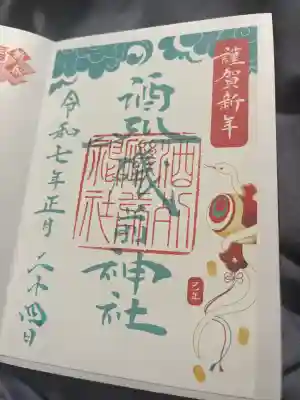 謹賀新年
巳年
酒列磯前神社
酒列磯前神社
令和七年正月二十四日